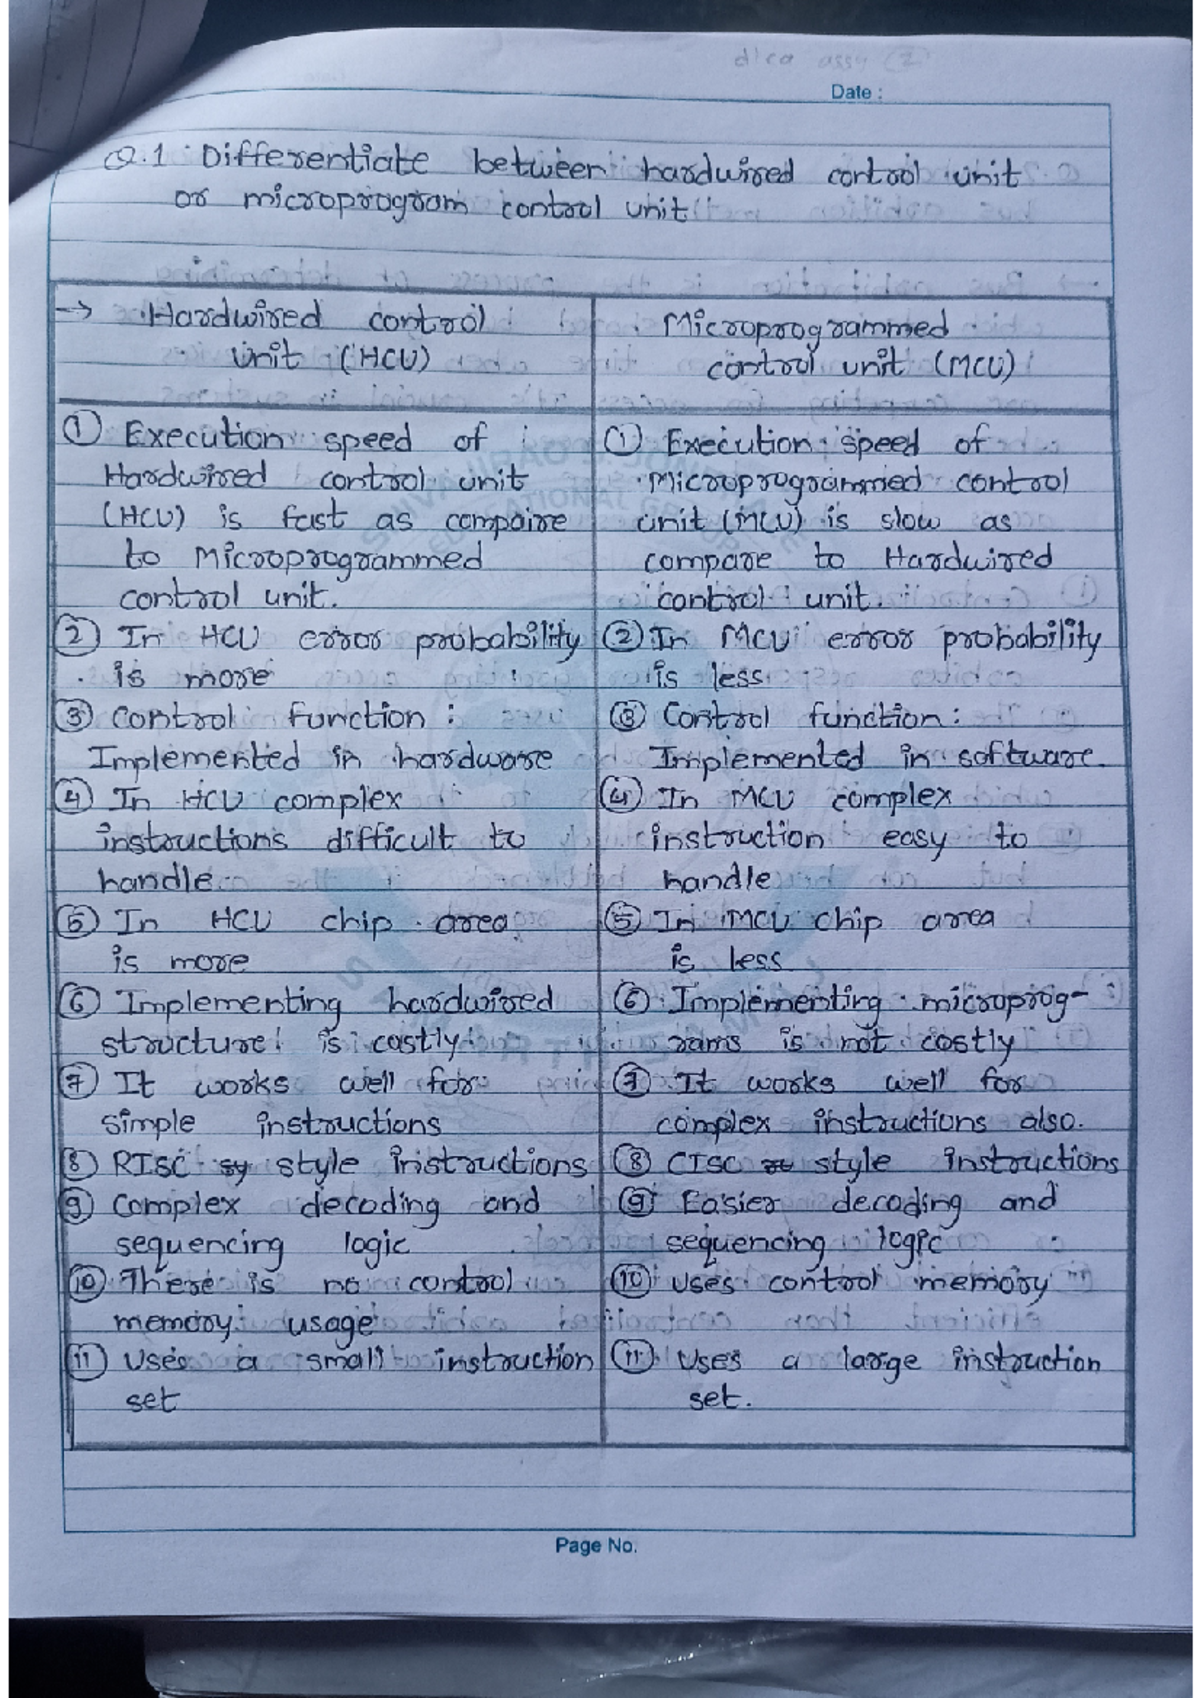 dlca assy (2)
Date :
Q.1 Differentiate between hardwired control unit
or microprogram control unit
→ Hardwired control
Unit (HCU)
① Execution speed of
Hardwired control unit
(HCU) is fast as compaire
to Microprogrammed
control unit.
② In HCU error probability
is more
③ Control function :
Implemented in hardware
④ In HCU complex
instructions difficult to
handle
⑤ In HCU chip area
is more
⑥ Implementing hardwired
structure is costly
⑦ It works well for
simple instructions
⑧ RISC style instructions
⑨ Complex decoding and
sequencing logic
⑩ There is no control
memory usage
⑪ Uses a small instruction
set
Microprogrammed
control unit (MCU)
① Execution speed of
Microprogrammed control
unit (MCU) is slow as
compare to Hardwired
control unit.
② In MCU error probability
is less
③ Control function :
Implemented in software.
④ In MCU complex
instruction easy to
handle
⑤ In MCU chip area
is less
⑥ Implementing microprog-
rams is not costly
⑦ It works well for
complex instructions also.
⑧ CISC style instructions
⑨ Easier decoding and
sequencing logic
⑩ Uses control memory
⑪ Uses a large instruction
set.
Page No.